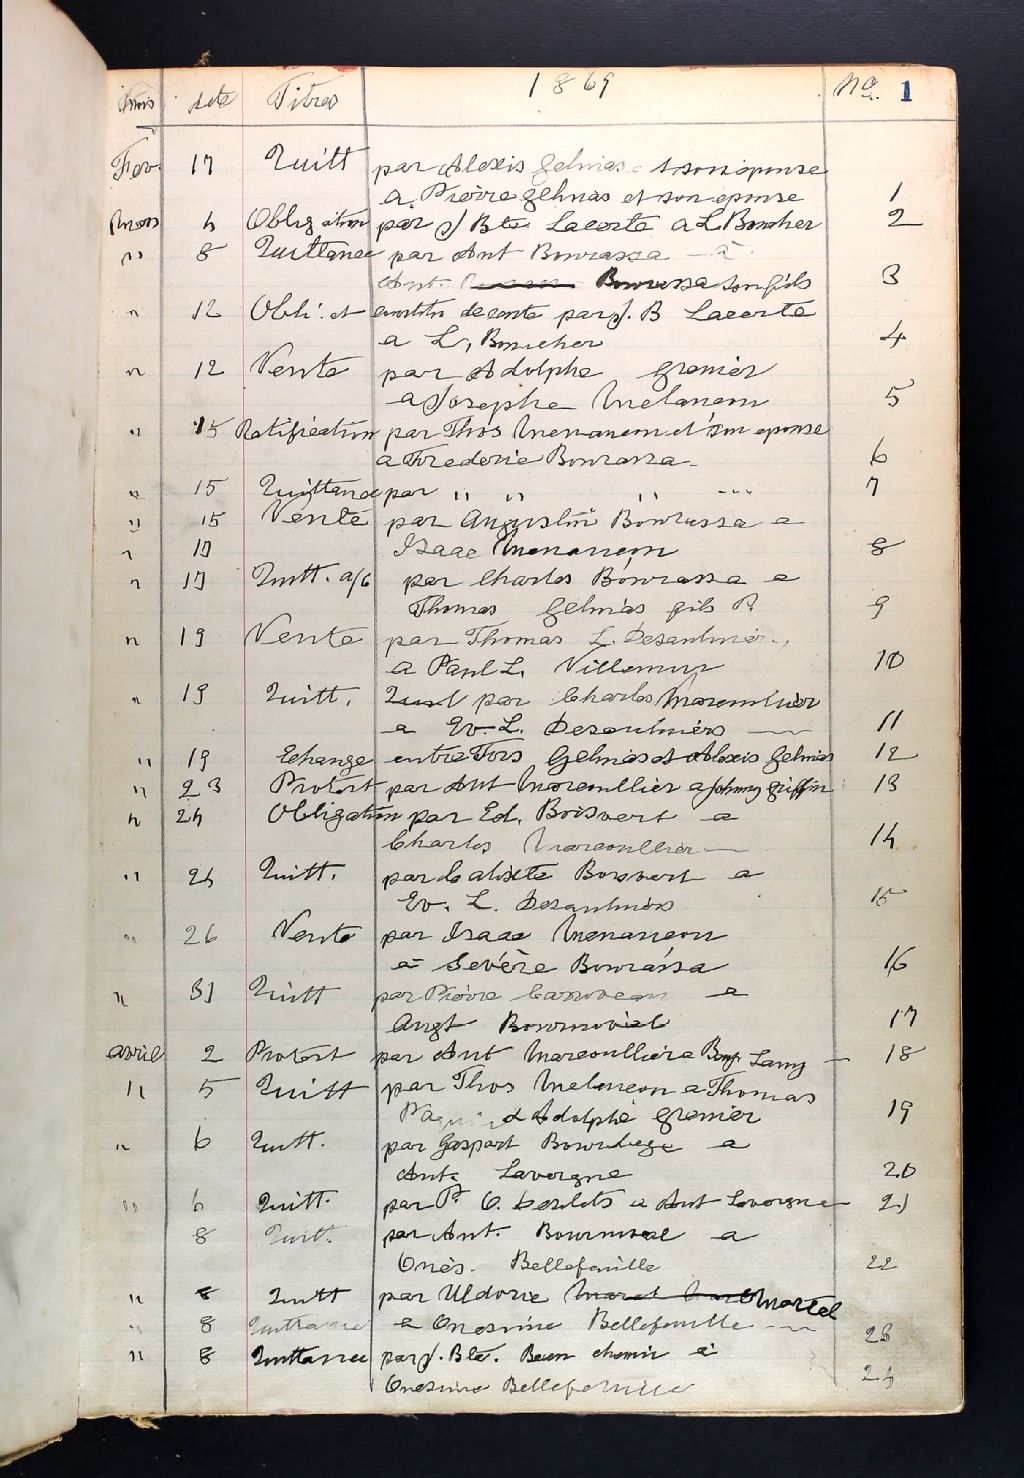 Mois date Titres 1869 No. 1
Fev. 17 Quitt par Alexis Gelinas et son epouse
a Pierre Gelinas et son epouse 1
Mars 4 Obligation par J Bte. Lacerte a L Boucher 2
" 8 Quittance par Ant Bourassa a
Ant. Bourassa son fils 3
" 12 Obli. et constitu de rente par J. B Lacerte
a L, Boucher 4
" 12 Vente par Adolphe Grenier
a Josephe Melancon 5
" 15 Ratification par Thos Menancon et son epouse
a Frederic Bourassa 6
" 15 Quittance par " " " ... 7
" 15 Vente par Augustin Bourassa a
" 17 Isaac Menancon 8
" 17 Quitt. a/c par Charles Bourassa a
Thomas Gelinas fils P. 9
" 19 Vente par Thomas L. Desaulniers
a Paul L. Villemur 10
" 19 Quitt. Quit par Charles Marcoullier
a Ev. L. Desaulniers 11
" 19 Echange entre Frs Gelinas et Alexis Gelinas 12
" 23 Protest par Ant Marcoullier a Johnny Griffin 13
" 24 Obligation par Ed. Boisvert a
Charles Marcoullier 14
" 24 Quitt. par Calixte Boisvert a
Ev. L. Desaulniers 15
" 26 Vente par Isaac Menancon
a Sévère Bourassa 16
" 31 Quitt par Pierre a
Augt Bournival 17
Avril 2 Protest par Ant Marcoullier a Benj. Lamy 18
" 5 Quitt par Thos Melancon a Thomas
et Adolphe Grenier 19
" 6 Quitt. par Gaspart a
Ant. Lavergne 20
" 6 Quitt. par P. O. Desilets a Ant Lavergne 21
8 Quitt. par Ant. Bournival a
Onés. Bellefeuille 22
" 8 Quitt par Uldoric Martel
" 8 Quittance a Onesime Bellefeuille 23
" 8 Quittance par J. Bte. Beauchemin a
Onesime Bellefeuille 24